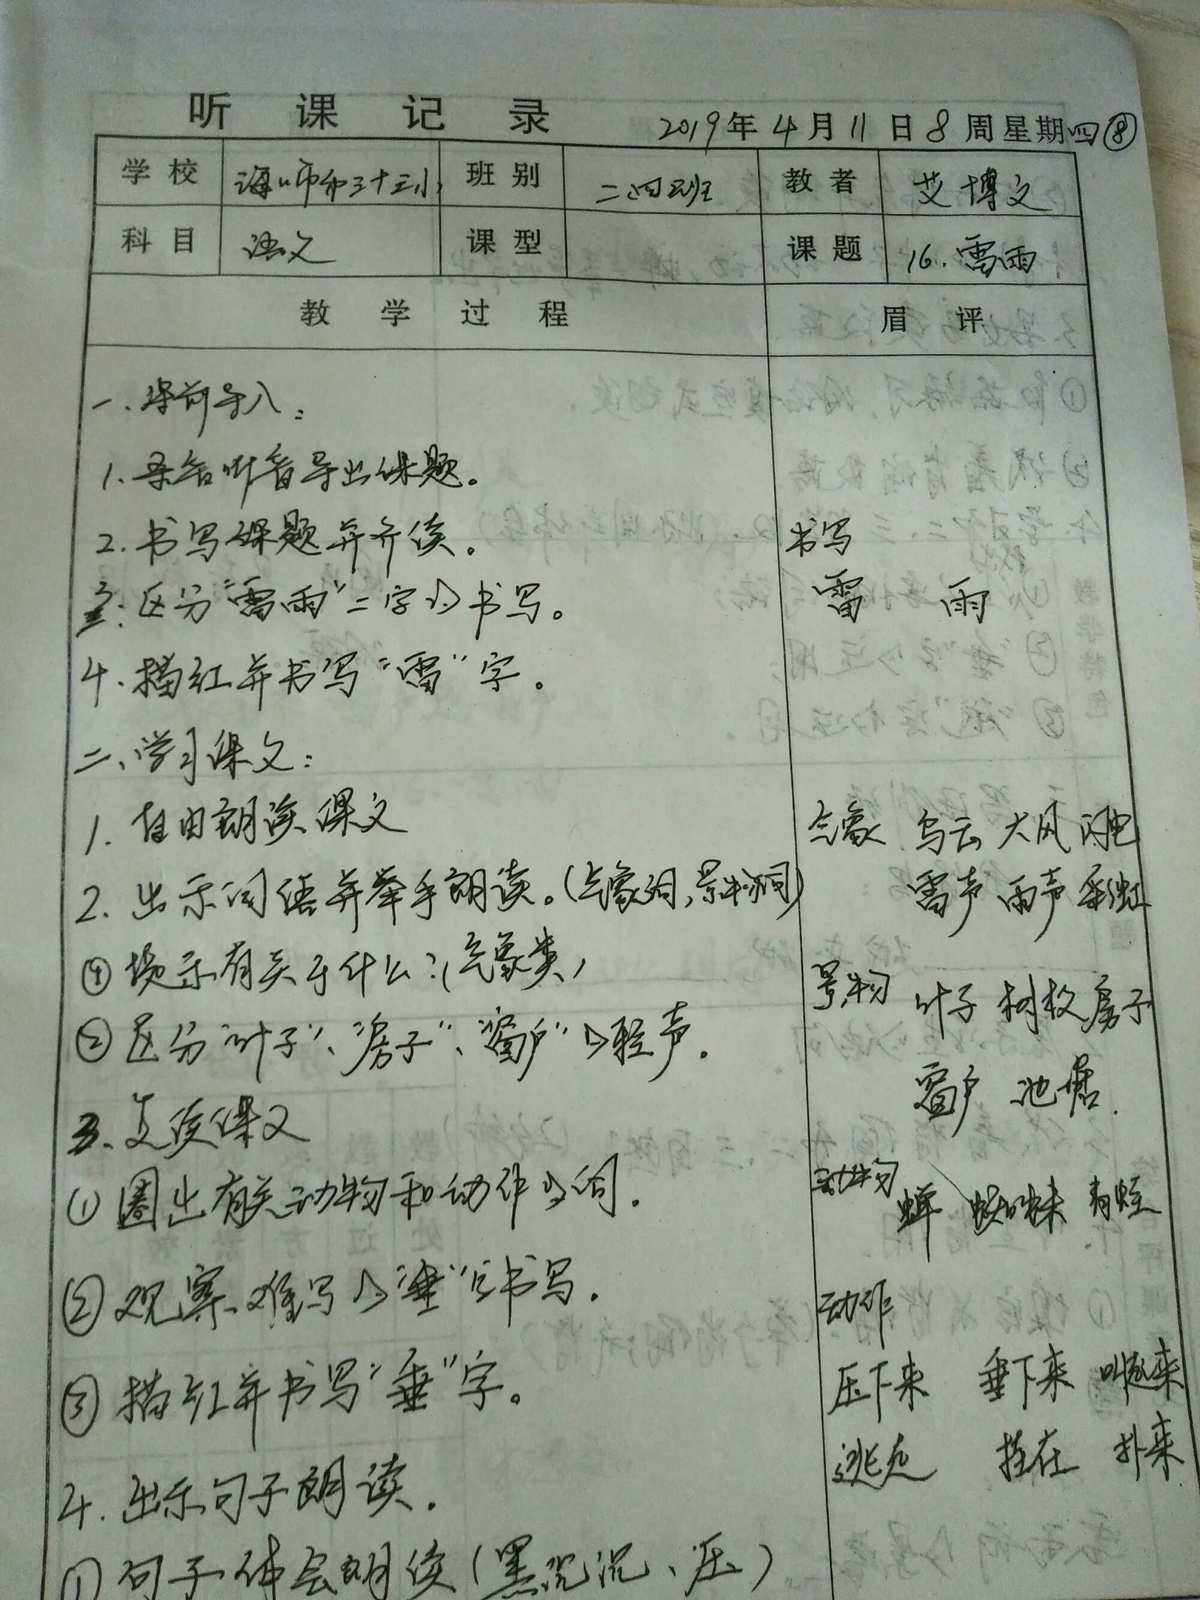 听课记录
2019年4月11日8周星期四⑧
学校 海口市第三十三小 班别 二(四)班 教者 艾博文
科目 语文 课型 课题 16.雷雨
教学过程 眉评
一、课前导入：
1. 听音导出课题。
2. 书写课题并齐读。
书写
3. 区分“雷雨”二字的书写。
雷 雨
4. 描红并书写“雷”字。
二、学习课文：
1. 自由朗读课文
气象 乌云 大风 闪电
2. 出示词语并举手朗读。(气象词,景物词)
雷声 雨声 彩虹
提示有关于什么?(气象类)
景物 叶子 树枝 房子
② 区分“叶子”、“房子”、“窗户”的轻声。
窗户 池塘
3. 读课文
① 圈出有关动物和动作的词。
动物 蝉 蜘蛛 青蛙
② 观察、难写的“垂”的书写。
动作
③ 描红并书写“垂”字。
压下来 垂下来 叫起来
逃走 挂在 扑来
4. 出示句子朗读。
① 句子体会朗读(黑沉沉、压)